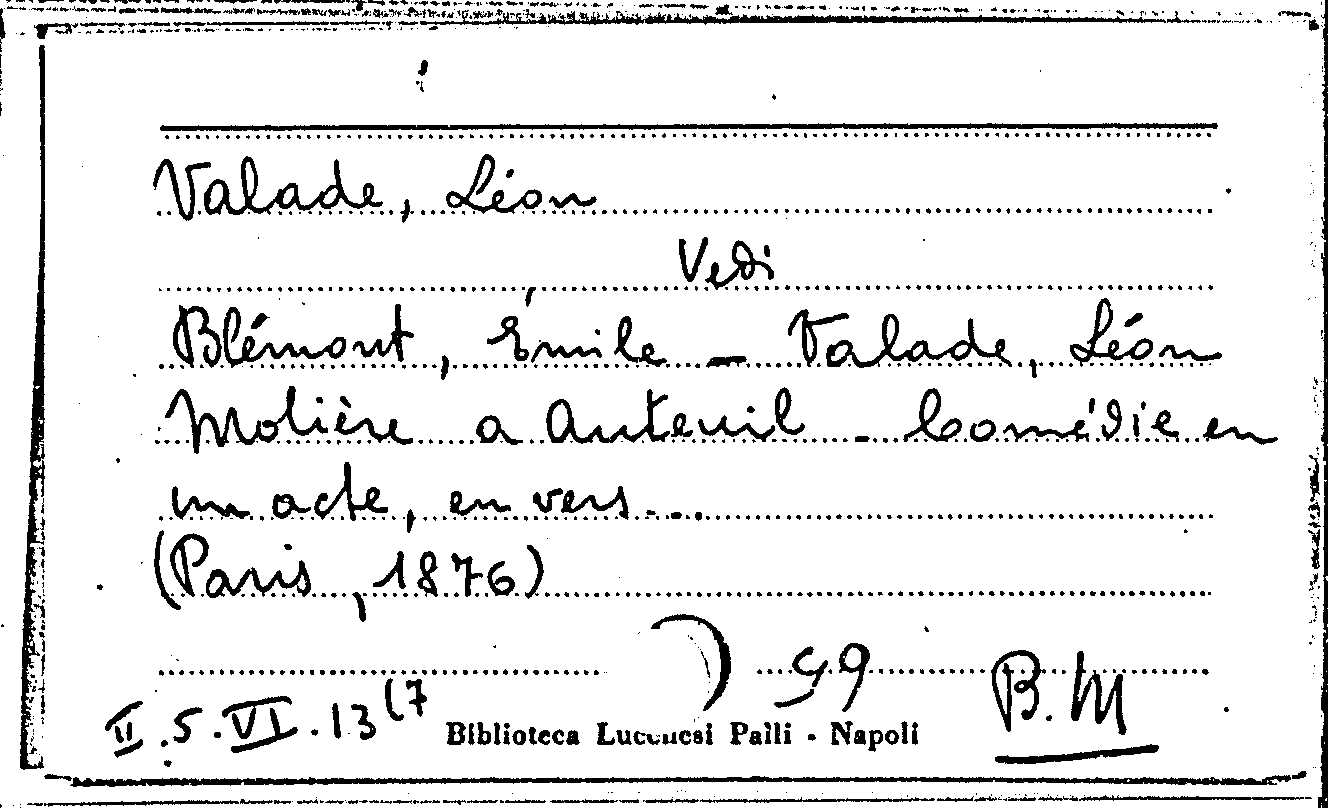 Valade, Léon
Vedi
Blémont, Émile - Valade, Léon
Molière a Auteuil - Comédie en
un acte, en vers...
(Paris, 1876)
59
B.M
II.5.VI.13(7
Biblioteca Lucchesi Palli - Napoli